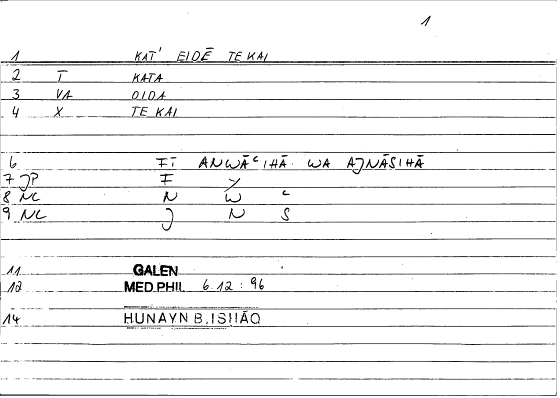 1
1 KAT' EIDĒ TE KAI
2 T KATA
3 VA OIDA
4 X TE KAI
6 FĪ ANWĀʿIHĀ WA AJNĀSIHĀ
7 JP F Y
8 NC N W ʿ
9 NC J N S
11 GALEN
12 MED.PHIL 6.12 : 96
14 HUNAYN B.ISḤĀQ